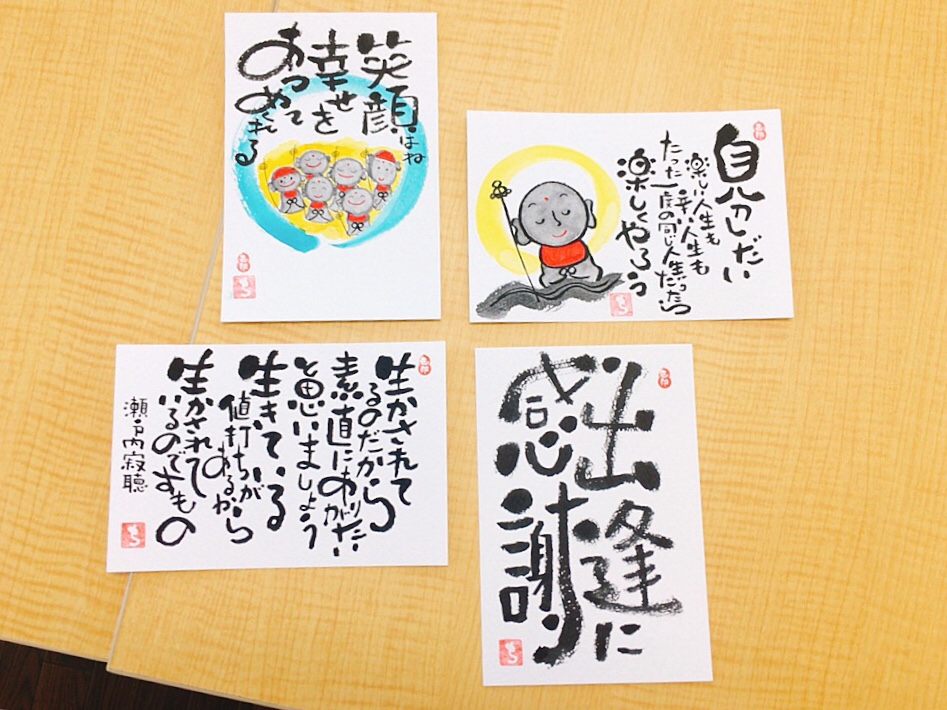 笑顔はね
幸せを
あつめて
くれる
自分しだい
楽しい人生も
辛い人生も
たった一度の同じ人生だったら
楽しくやろう
生かされて
るのだから
素直にありがたい
と思いましょう
生きている
値打ちが
あるから
生かされて
いるのですもの
瀬戸内寂聴
出逢に
感謝